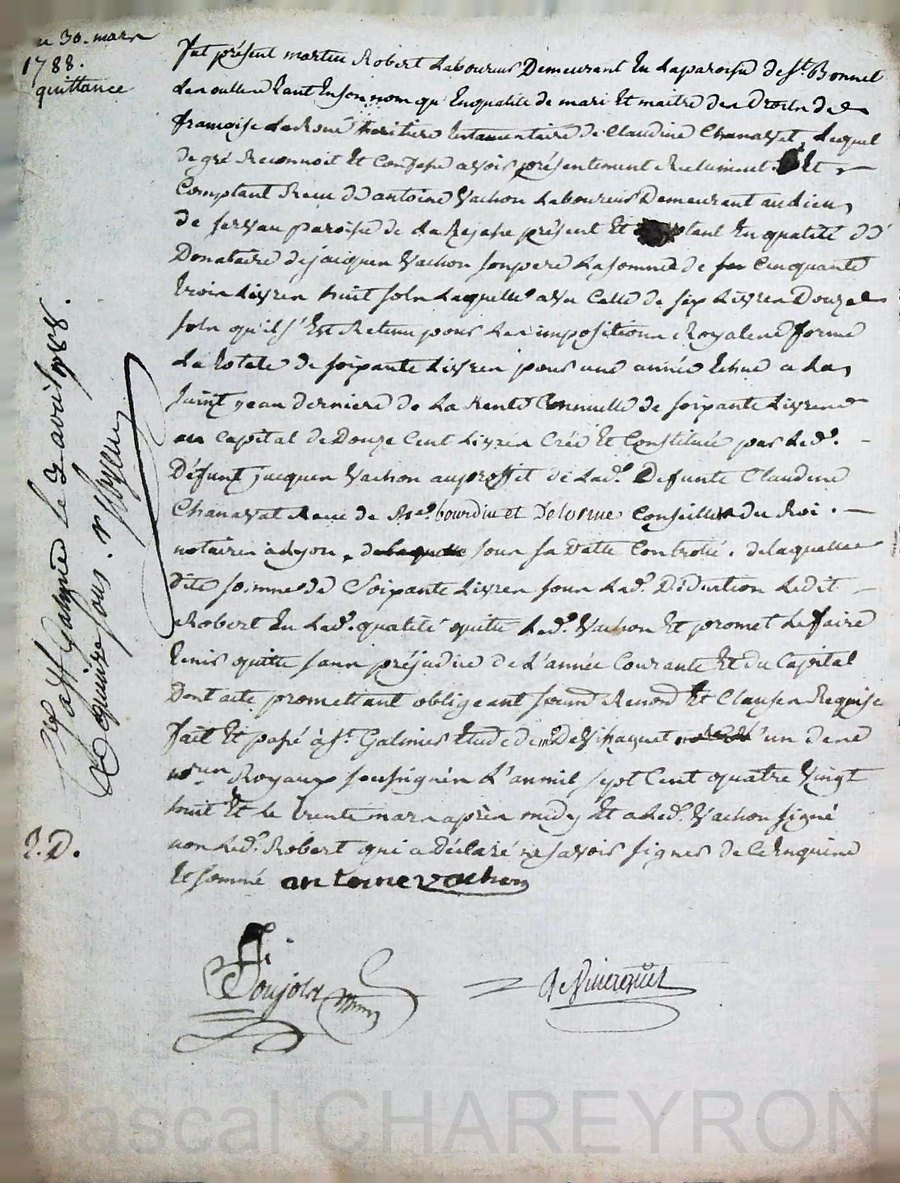 30. mars
1788.
quittance
fut présent martin Robert Laboureur Demeurant En La paroisse de St. Bonnet
Les oulles tant En son nom qu'En qualité de mari Et maitre des Droits de
francoise heritiere testamentaire de Claudine Chanavat, Lequel
de gré Reconnoit Et Confesse avoir présentement Reellement Et
Comptant Recu d antoine Vachon Laboureur Demeurant au Lieu
de paroisse de La présent Et En qualité de
Donataire de jacques Vachon son pere La somme de Cinquante
trois Livres huit sols Laquelle avec Celle de six Livres Douze
sols qu'il s'Est Retenu pour Les impositions Royales forme
La totale de soixante Livres pour une année Echue a La
saint jean derniere de La Rente annuelle de soixante Livres
au Capital de Douze Cent Livres Créé Et Constituée par Led.
Défunt jacques Vachon au proffit de Lad. Defunte Claudine
Chanavat Recu de Me. bourdin et Delorme Conseillers du Roi
notaires à Lyon, sous sa Datte Controlé. de laquelle
dite somme de Soixante Livres sous Lad. Deduction Ledit
Robert En Lad. qualité quitte Led. Vachon Et promet Le faire
tenir quitte sans préjudice de L'année Courante Et du Capital
Dont acte promettant obligeant soum. Renon. Et Clauses Requises
fait Et passé à St. Galmier Etude de me. De Viraguet L'un des
nres. Royaux soussignés L'an mil sept Cent quatre Vingt
huit Et le trente mars après midy Et a Led. Vachon signé
non Led. Robert qui a Déclaré ne savoir signer de Ce Enquis
Et sommé antoine vachon
Ponjolat
de Viraguet
St Galmier Le 3 avril 1788.
Reçu quinze sous.
E. D.
Pascal CHAREYRON